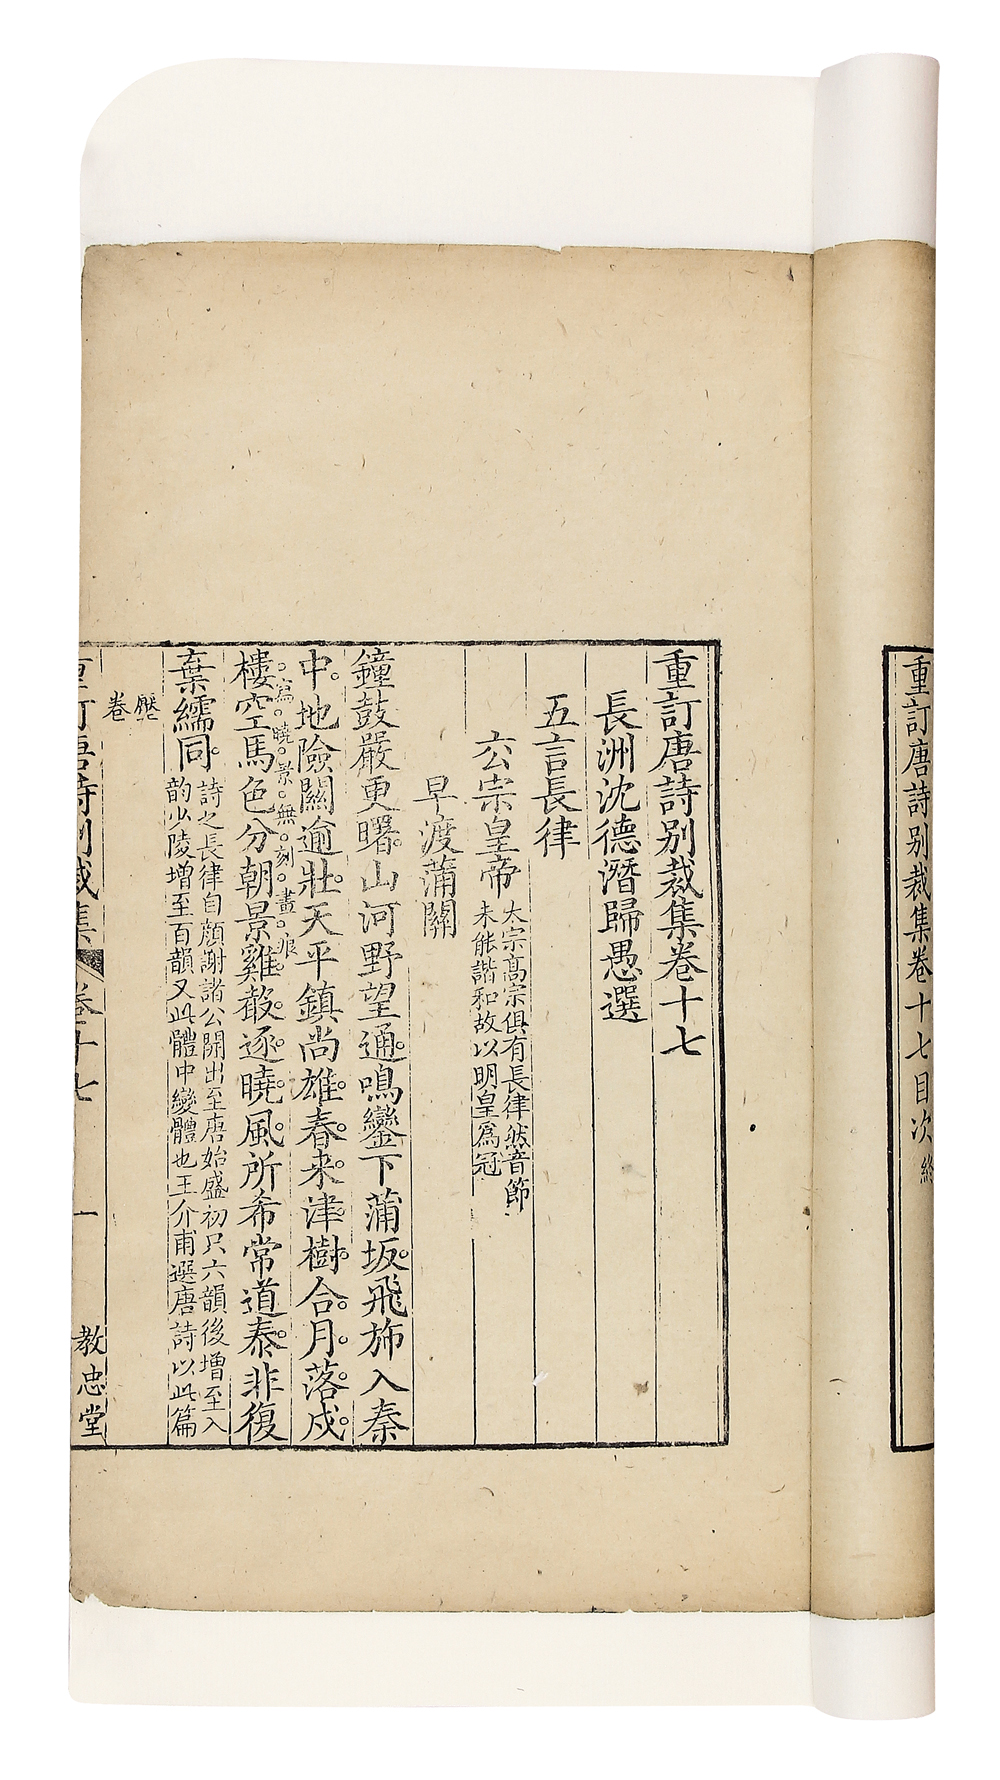 重訂唐詩别裁集卷十七目次終
重訂唐詩别裁集卷十七
長洲沈德潛歸愚選
五言長律
玄宗皇帝 太宗高宗俱有長律然音節
未能諧和故以明皇爲冠
早渡蒲關
鐘鼓嚴更曙。山河野望通。鳴鑾下蒲坂。飛斾入秦
中。地險關逾壯。天平鎮尚雄。春来津樹合。月落戍
寫曉景無刻畫痕
樓空馬色分朝景雞聲逐曉風。所希常道泰。非復
棄繻同。 詩之長律自顔謝諸公開出至唐始盛初只六韻後增至八
韵少陵增至百韻又此體中變體也王介甫選唐詩以此篇
壓
卷
重訂唐詩别裁集 卷十七 一 教忠堂